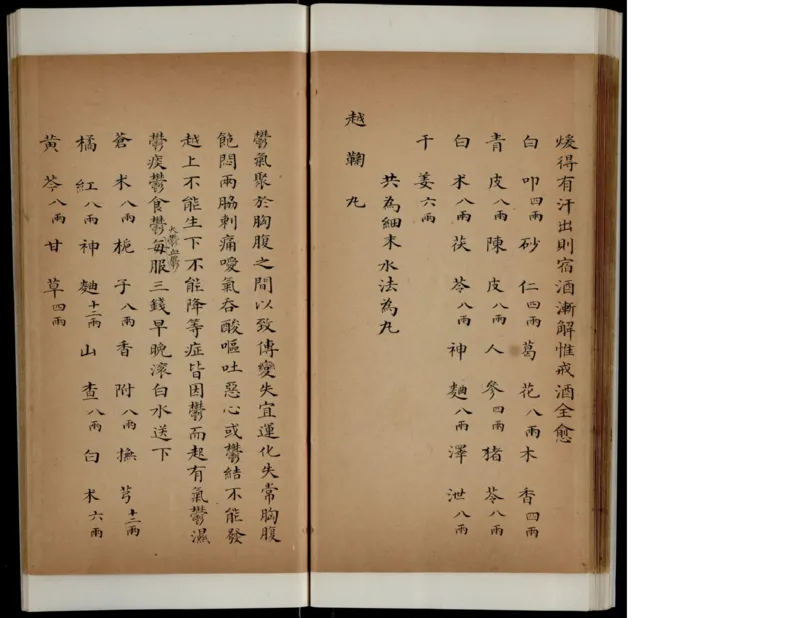 煖得有汗出則宿酒漸解惟戒酒全愈
白叩四兩砂仁四兩葛花八兩木香四兩
青皮八兩陳皮八兩人參四兩豬苓八兩
白朮八兩茯苓八兩神麯八兩澤泄八兩
干姜六兩
共為細末水法為丸
越鞠丸
鬱氣聚於胸腹之間以致傳變失宜運化失常胸腹
飽悶兩脇刺痛噯氣吞酸嘔吐惡心或鬱結不能發
越上不能生下不能降等症皆因鬱而起有氣鬱濕
鬱痰鬱食鬱火鬱血鬱每服三錢早晚滾白水送下
蒼朮八兩梔子八兩香附八兩撫芎十二兩
橘紅八兩神麯十二兩山查八兩白朮六兩
黃芩八兩甘草四兩